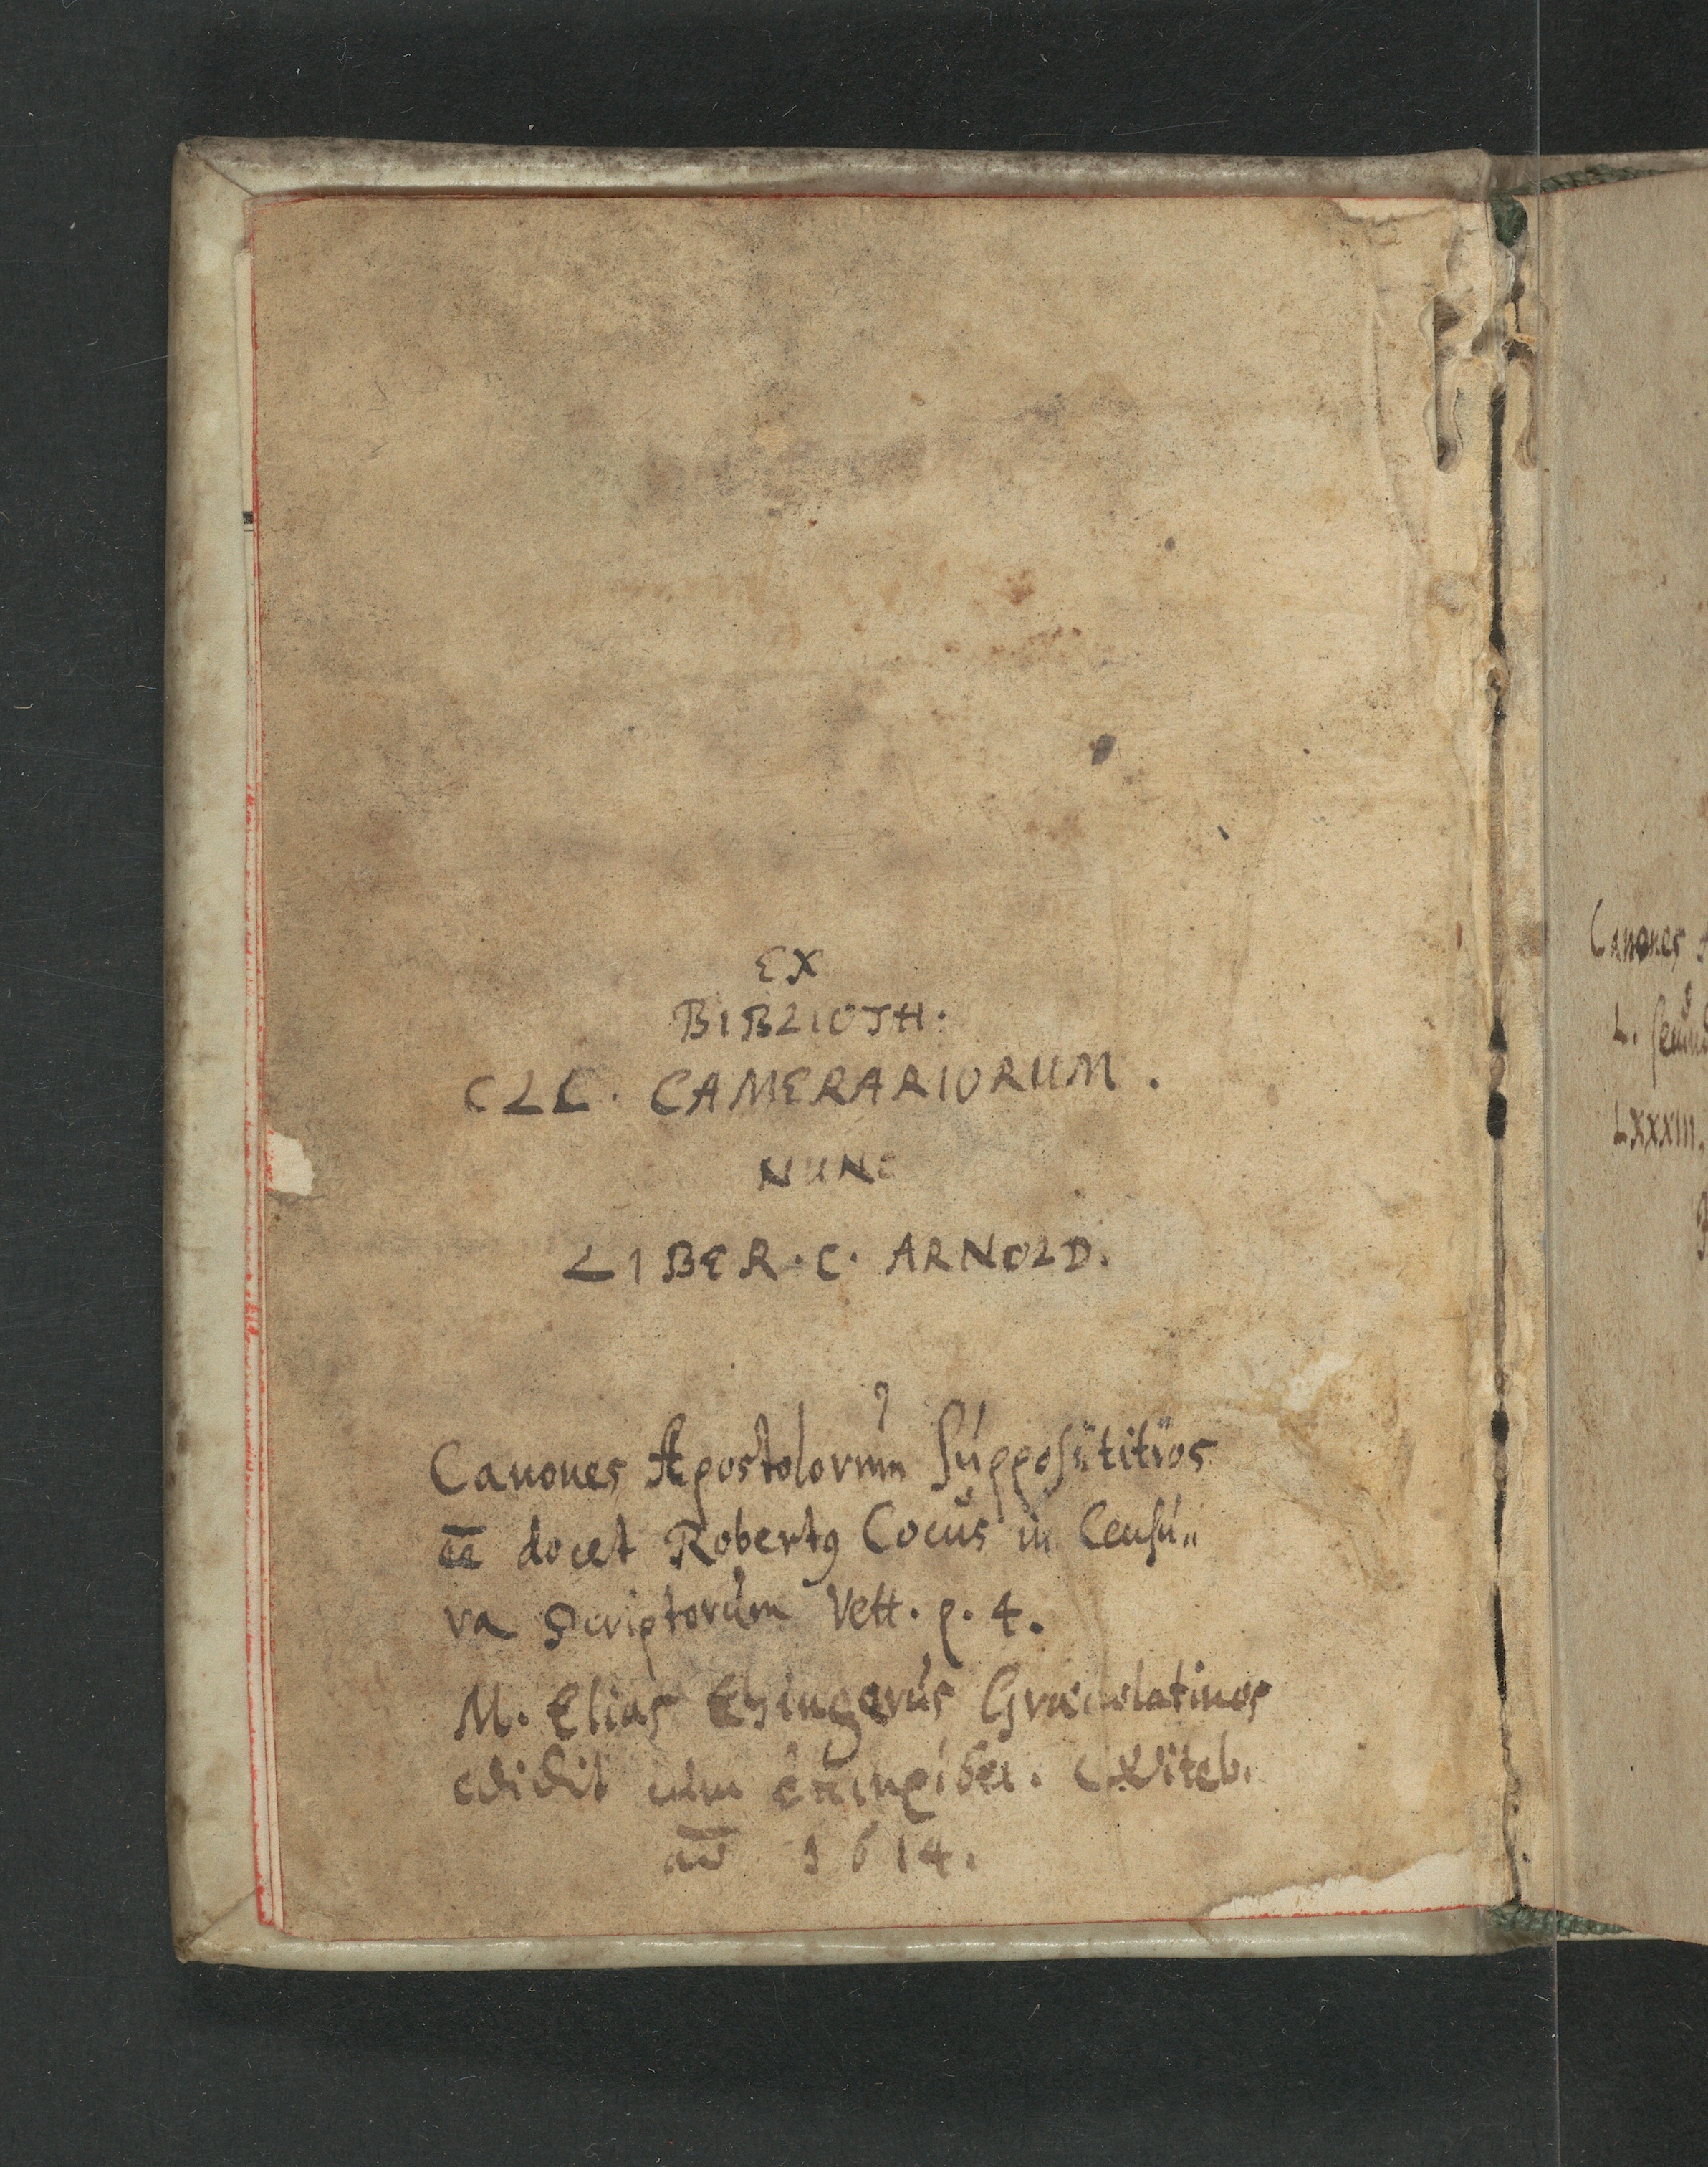 EX
BIBLIOTH.
CLL. CAMERARIORUM.
NUNC
LIBER. C. ARNOLD.
Canones Apostolorum Supposititios
ēē docet Robertꝰ Cocus in Censu„
ra Scriptorum Vett. p. 4.
M. Elias Ehingerus Græcolatinos
edidit cum ἐπικρίσει. Witeb.
aō 1614.
Canones
L.
LXXXIII.